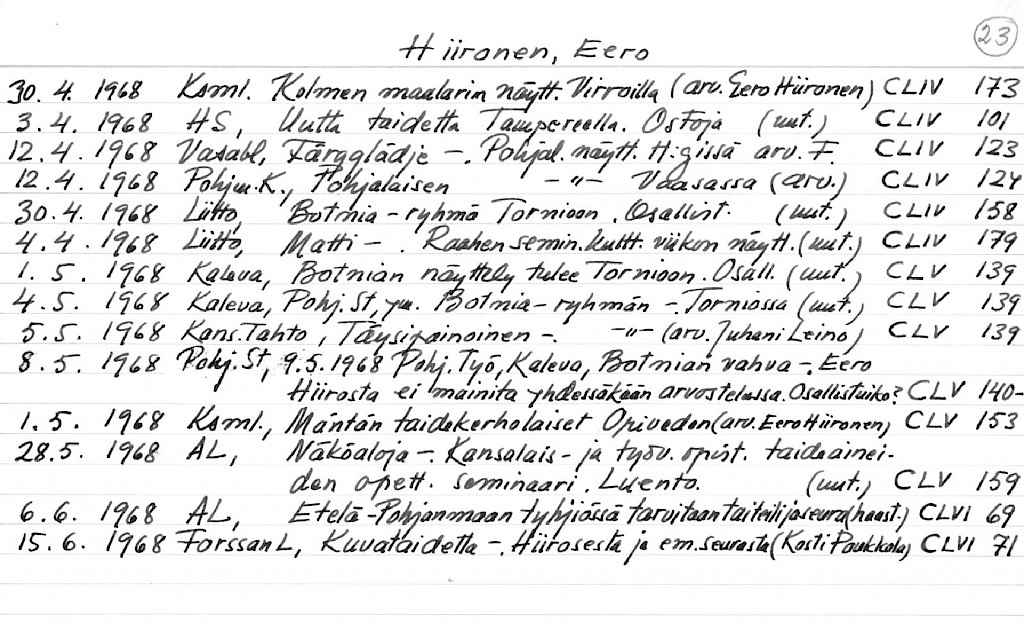 23
Hiironen, Eero
30. 4. 1968 Ksml. Kolmen maalarin näytt. Virroilla (arv. Eero Hiironen) CLIV 173
3. 4. 1968 HS, Uutta taidetta Tampereella. Ostoja (uut.) CLIV 101
12. 4. 1968 Vasabl, Färgglädje -. Pohjal. näytt. H:gissä arv. F. CLIV 123
12. 4. 1968 Pohjm. K., Pohjalaisen -"- Vaasassa (arv.) CLIV 124
30. 4. 1968 Liitto, Botnia-ryhmä Tornioon. Osallist. (uut.) CLIV 158
4. 4. 1968 Liitto, Matti -. Raahen semin. kultt. viikon näytt. (uut.) CLIV 179
1. 5. 1968 Kaleva, Botnian näyttely tulee Tornioon. Osall. (uut.) CLV 139
4. 5. 1968 Kaleva, Pohj. St, ym. Botnia-ryhmän -. Torniossa (uut.) CLV 139
5. 5. 1968 Kans. Tahto, Täysipainoinen -. -"- (arv. Juhani Leino) CLV 139
8. 5. 1968 Pohj. St, 9.5.1968 Pohj. Työ, Kaleva, Botnian vahva -. Eero
Hiirosta ei mainita yhdessäkään arvostelussa. Osallistuiko? CLV 140-
1. 5. 1968 Ksml., Mäntän taidekerholaiset Orivedon (arv. Eero Hiironen) CLV 153
28. 5. 1968 AL, Näköaloja -. Kansalais- ja työv. opist. taideainei-
den opett. seminaari. Luento. (uut.) CLV 159
6. 6. 1968 AL, Etelä-Pohjanmaan tyhjiössä tarvitaan taiteilijaseura (haast.) CLVI 69
15. 6. 1968 Forssan L, Kuvataidetta -. Hiirosesta ja em. seurasta (Kosti Paukkola) CLVI 71